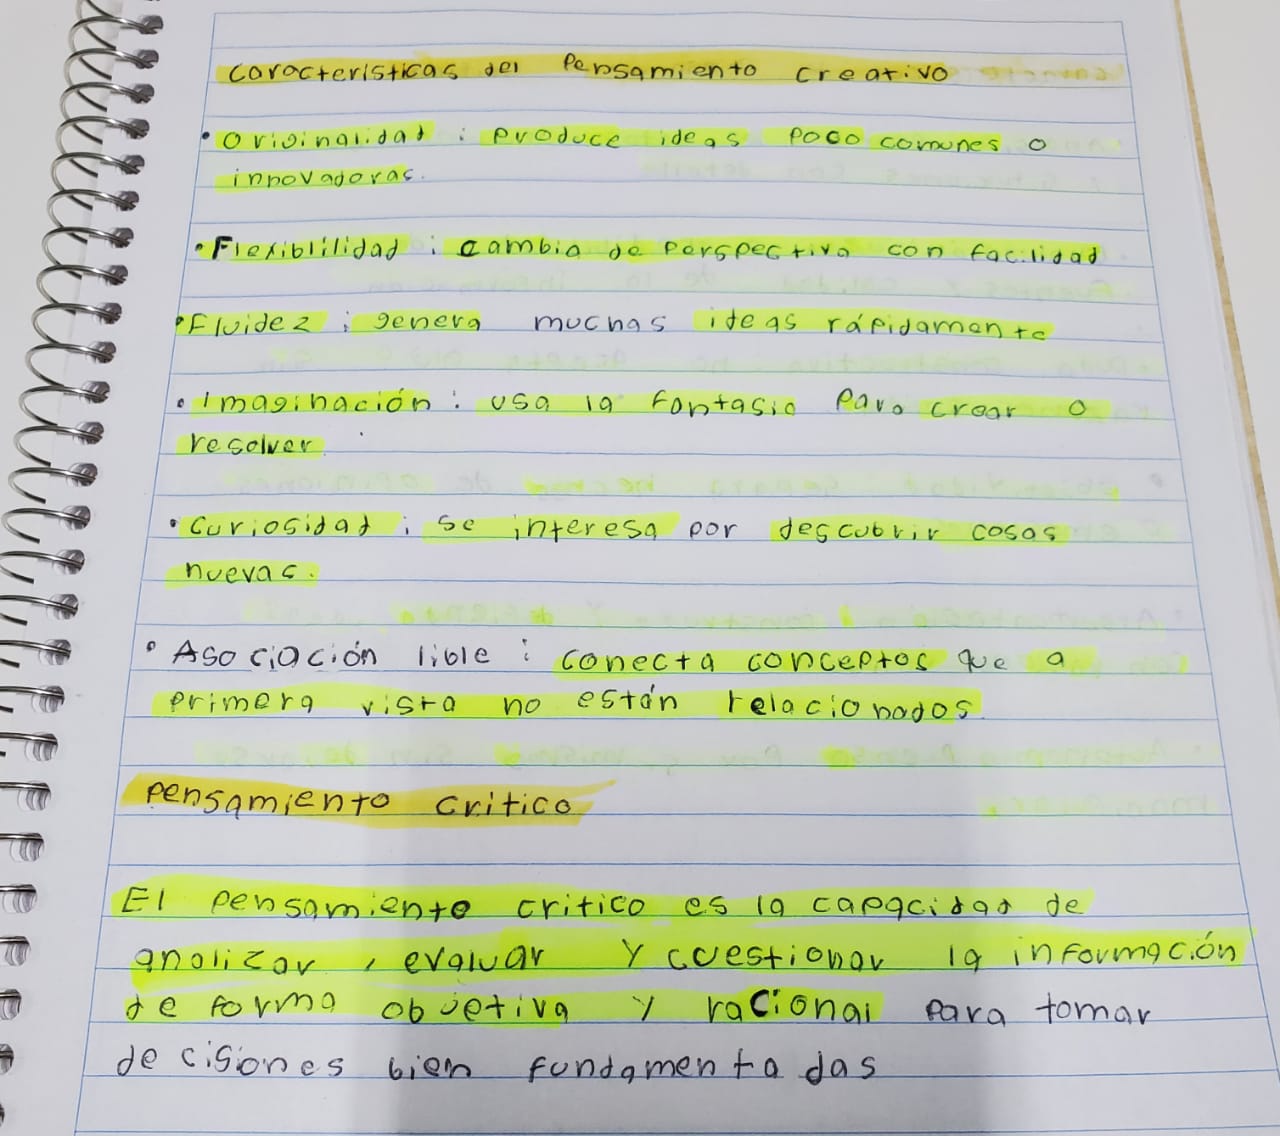 Características del Pensamiento creativo
• Originalidad : produce ideas poco comunes o
innovadoras.
• Flexiblilidad : cambia de perspectiva con facilidad
• Fluidez : genera muchas ideas rápidamente
• Imaginación : usa la fantasia para crear o
resolver.
• Curiosidad : se interesa por descubrir cosas
nuevas.
• Asociación lible : conecta conceptos que a
primera vista no están relacionados.
Pensamiento critico
El pensamiento critico es la capacidad de
analizar, evaluar y cuestionar la información
de forma objetiva y racional para tomar
decisiones bien fundamentadas